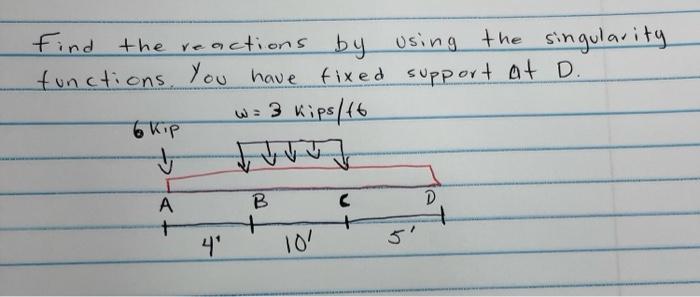 Find the reactions by using the singularity
functions. You have fixed support at D.
w = 3 kips/ft
6 kip
A B C D
4' 10' 5'